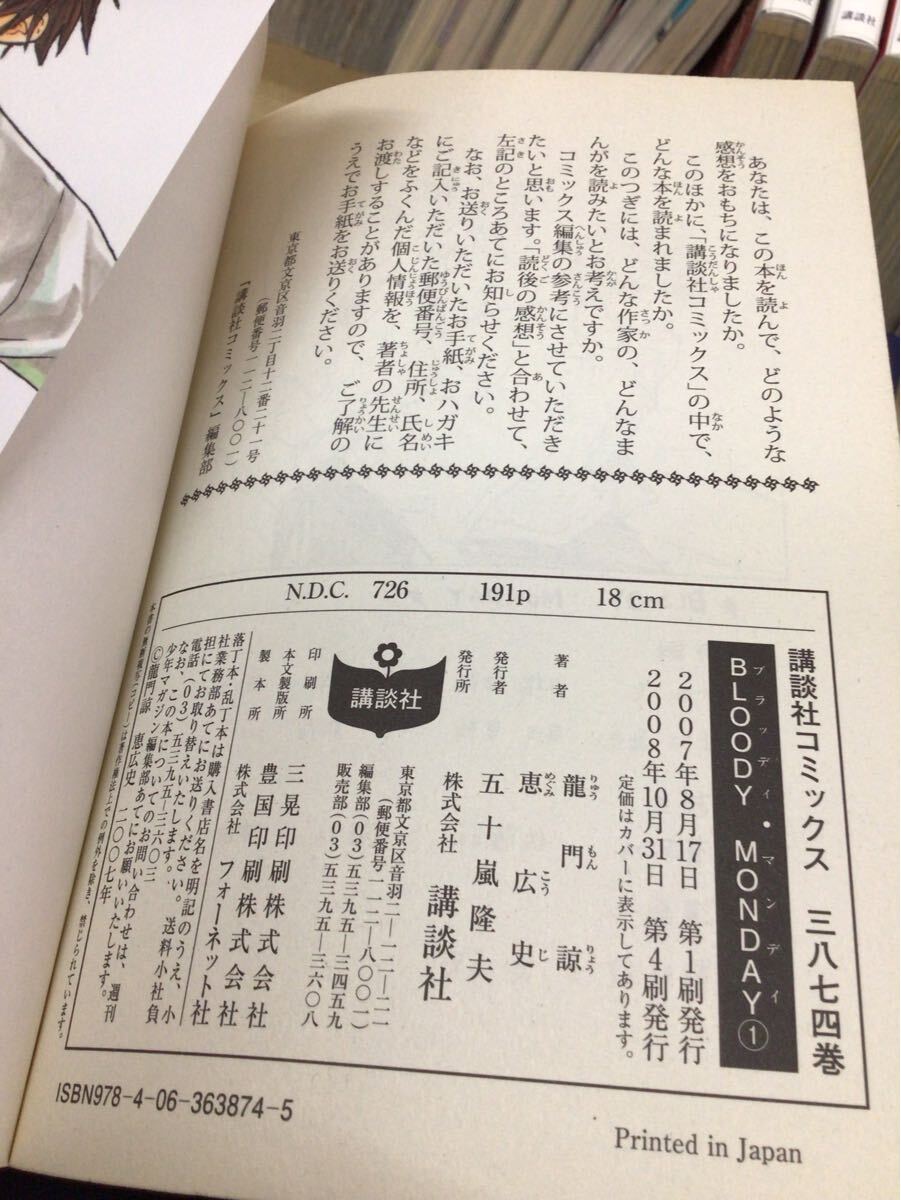 講談社
あなたは、この本を読んで、どのような
感想をおもちになりましたか。
このほかに、「講談社コミックス」の中で、
どんな本を読まれましたか。
このつぎには、どんな作家の、どんなま
んがを読みたいとお考えですか。
コミックス編集の参考にさせていただき
たいと思います。「読後の感想」と合わせて、
左記のところあてにお知らせください。
なお、お送りいただいたお手紙、おハガキ
にご記入いただいた郵便番号、住所、氏名
などをふくんだ個人情報を、著者の先生に
お渡しすることがありますので、ご了解の
うえでお手紙をお送りください。
東京都文京区音羽二丁目十二番二十一号
(郵便番号一一二―八〇〇一)
「講談社コミックス」編集部
N.D.C. 726 191p 18 cm
講談社コミックス 三八七四巻
BLOODY・MONDAY①
ブラッディ マンデイ
2007年8月17日 第1刷発行
2008年10月31日 第4刷発行
定価はカバーに表示してあります。
著者 龍門諒
りゅう もん りょう
恵広史
めぐみ こう じ
発行者 五十嵐隆夫
発行所 株式会社 講談社
東京都文京区音羽二―一二―二一
(郵便番号一一二―八〇〇一)
編集部(03)五三九五―三四五九
販売部(03)五三九五―三六〇八
講談社
印刷所 三晃印刷株式会社
本文製版所 豊国印刷株式会社
製本所 株式会社 フォーネット社
落丁本・乱丁本は購入書店名を明記のうえ、小
社業務部あてにお送りください。送料小社負
担にてお取り替えいたします。
電話(03)五三九五―三六〇三
なお、この本についてのお問い合わせは、週刊
少年マガジン編集部あてにお願いいたします。
©龍門諒 恵広史 二〇〇七年
本書の無断複写(コピー)は著作権法上での例外を除き、禁じられています。
ISBN978-4-06-363874-5
Printed in Japan